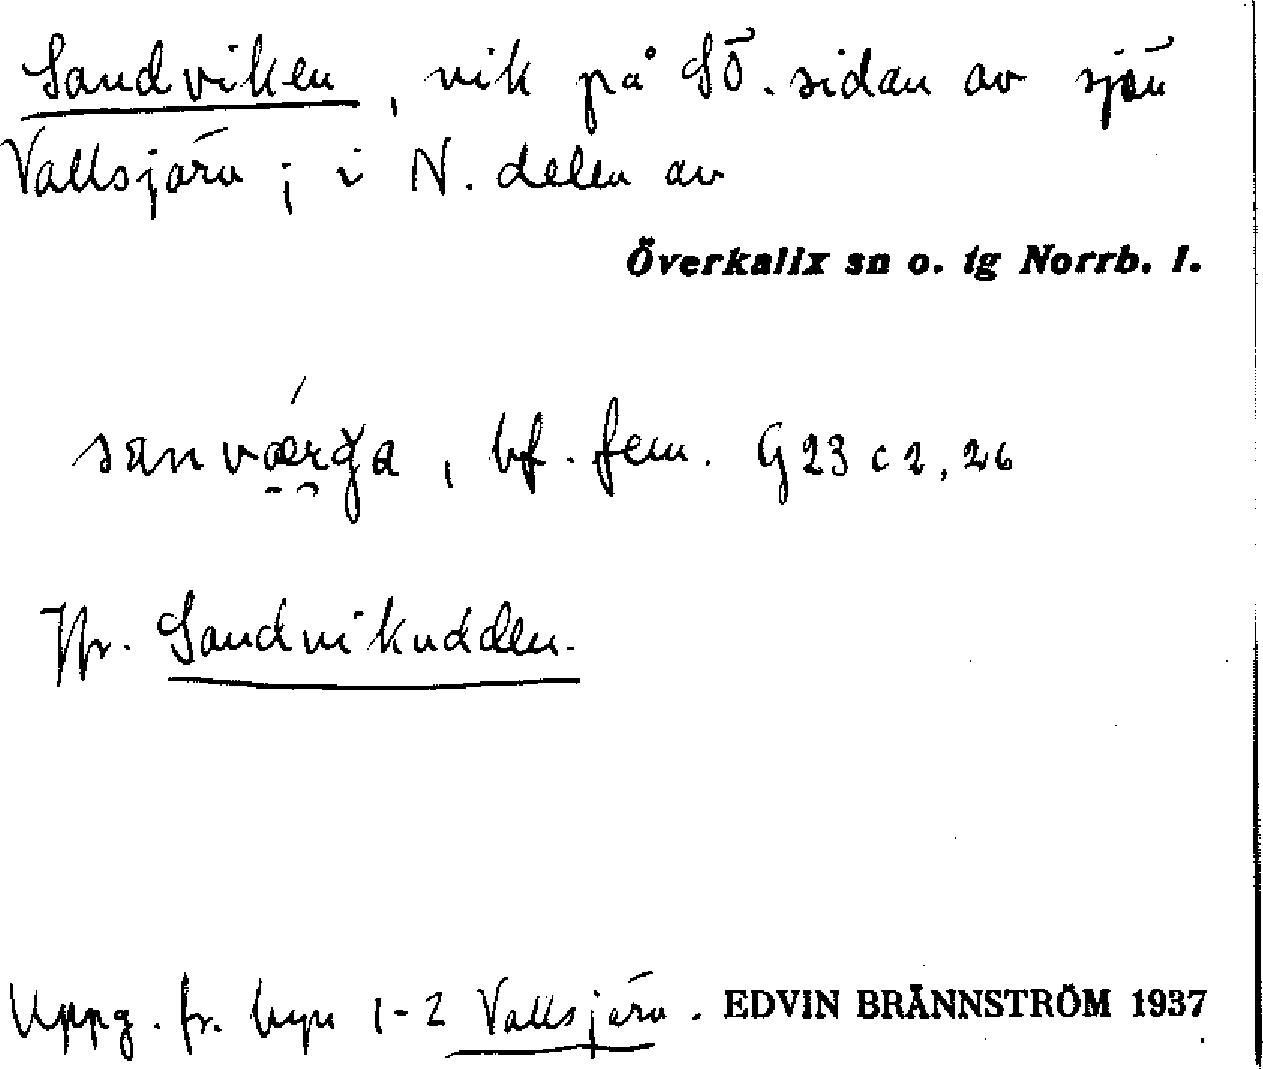 Sandviken, vik på SÖ. sidan av sjön
Vallsjärv; i N. delen av
Överkalix sn o. tg Norrb. l.
bf. fem. G 23 c 2, 26
Jfr. Sandvikudden.
Uppg. fr. byn 1-2 Vallsjärv. EDVIN BRÄNNSTRÖM 1937